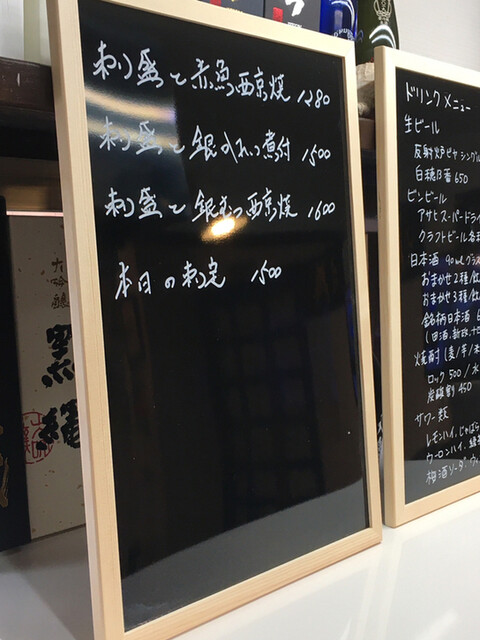 刺り盛と赤魚西京焼 1280
刺り盛と銀がれい煮付 1500
刺り盛と銀むつ西京焼 1600
本日の刺り定 1500
ドリンクメニュー
生ビール
反射炉ビヤ シングル
白穂乃香 650
ビンビール
アサヒスーパードライ
クラフトビール各種
日本酒 90mlグラス
おまかせ2種/飲
おまかせ3種/飲
銘柄日本酒 6
(田酒、新政、十四
焼酎(麦/芋/米
ロック 500/水
炭酸割 450
サワー類
レモンハイ、じゃばら
ウーロンハイ、緑茶
梅酒ソーダ・ウ
大吟醸
黒縄